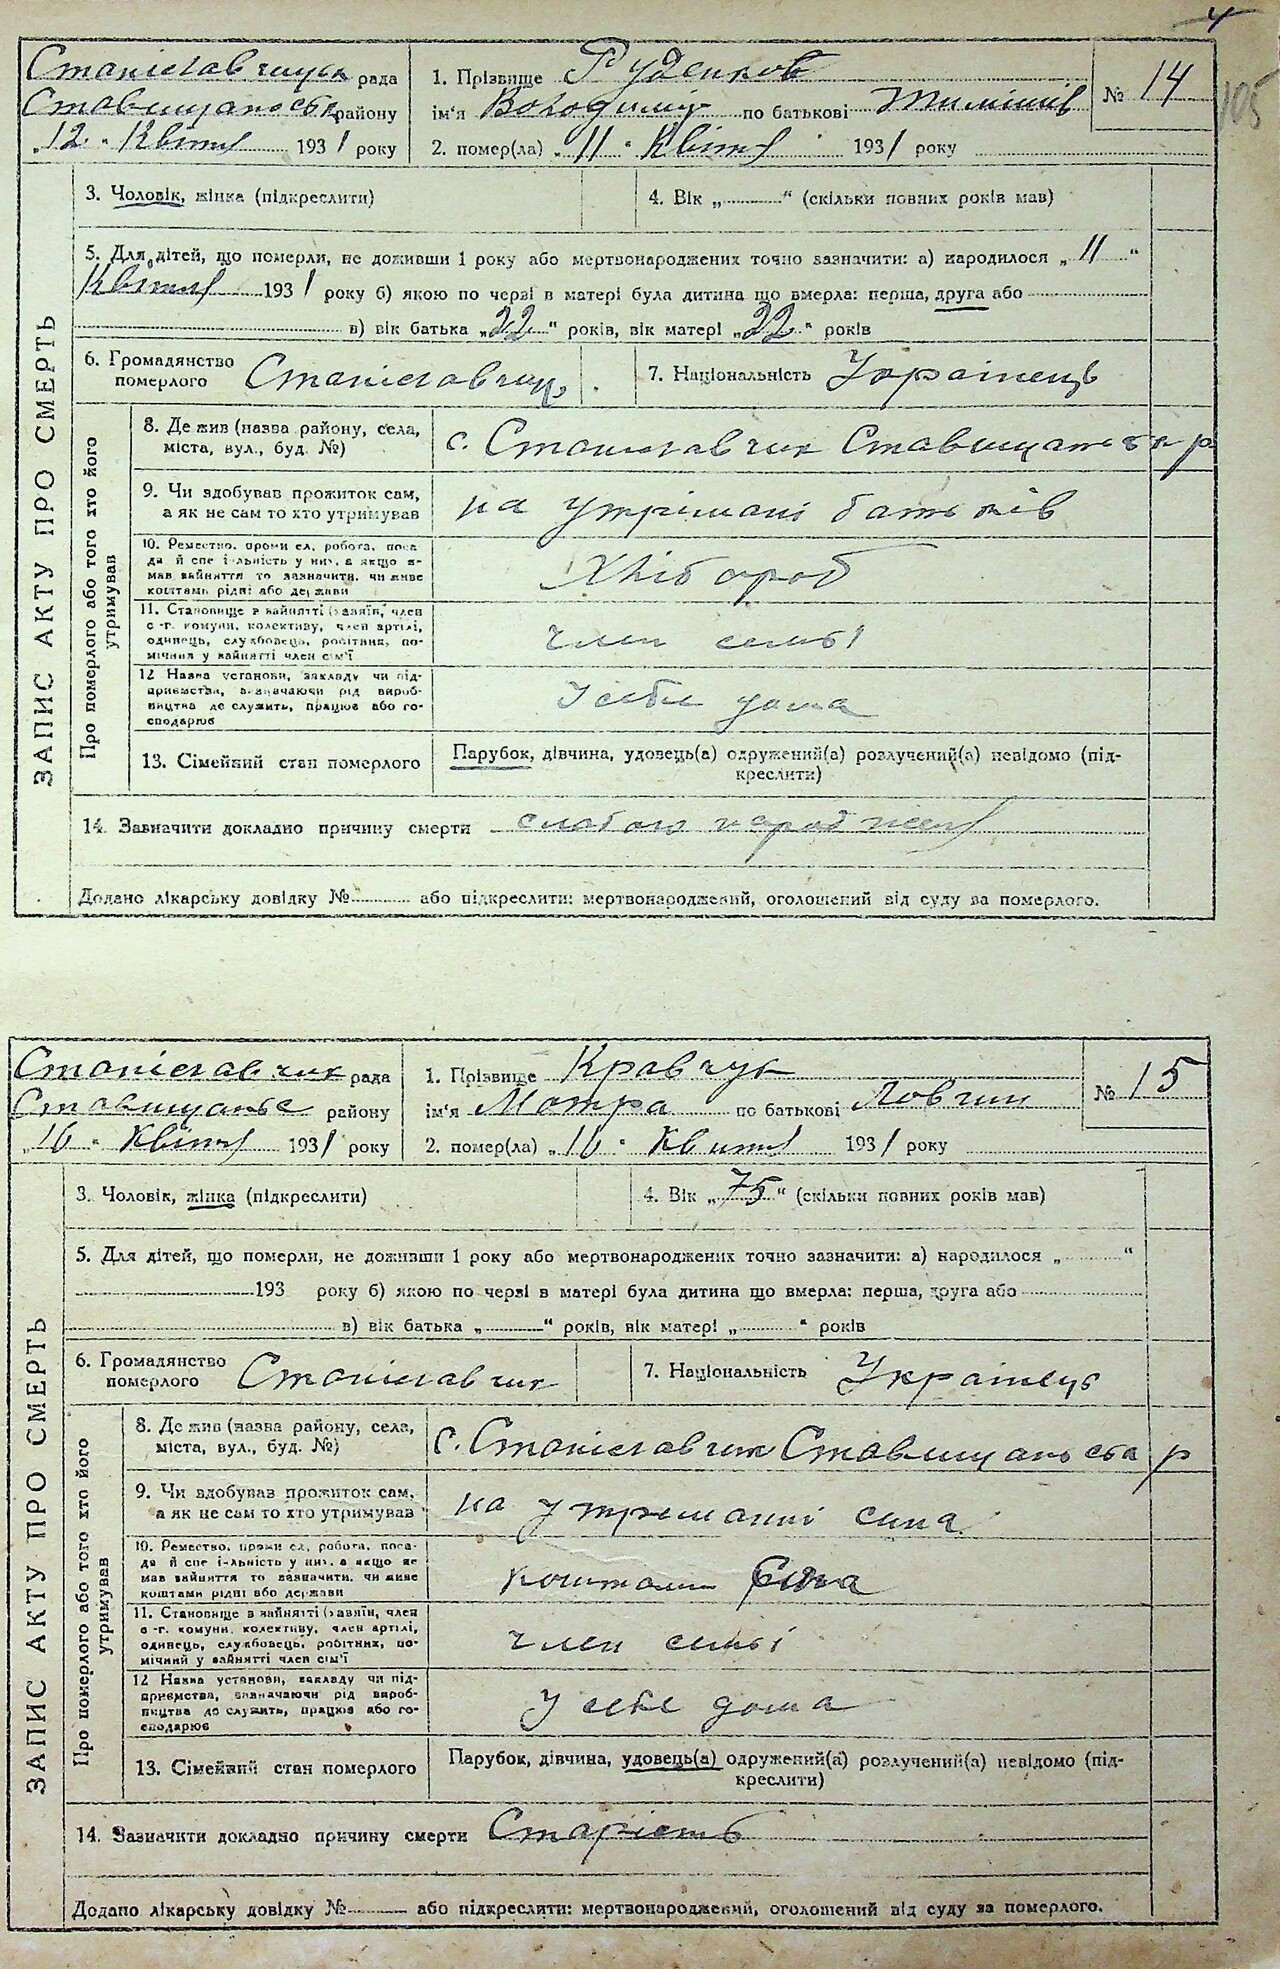 4
105
Станіславчицк рада
Ставищанськ району
„12„ Квітня 1931 року
1. Прізвище Руденков
ім'я Володимір по батькові Тимішів
2. помер(ла) „11„ Квітня 1931 року
№ 14
ЗАПИС АКТУ ПРО СМЕРТЬ
3. Чоловік, жінка (підкреслити)
4. Вік „ “ (скільки повних років мав)
5. Для дітей, що померли, не доживши 1 року або мертвонароджених точно зазначити: а) народилося „11“
Квітня 1931 року б) якою по черзі в матері була дитина що вмерла: перша, друга або
в) вік батька „22“ років, вік матері „22“ років
6. Громадянство
померлого Станіславчиц
7. Національність Українець
Про померлого або того хто його
утримував
8. Де жив (назва району, села,
міста, вул., буд. №)
с. Станиславчик Ставищанська р
9. Чи здобував прожиток сам,
а як не сам то хто утримував
на утрімані батьків
10. Ремество, проми сл, робота, поса
да й спе і-льність у них, а якщо н-
мав зайняття то зазначити, чи живе
коштами рідні або держави
Хлібороб
11. Становище в зайнятті (хазяїн, член
с -г. комуни, колективу, член артілі,
одинець, службовець, робітник, по-
мічник у зайнятті член сім'ї
член семьі
12 Назва установи, закладу чи під-
приємства, визначаючи рід вироб-
ництва де служить, працює або го-
сподарює
У себе дома
13. Сімейний стан померлого
Парубок, дівчина, удовець(а) одружений(а) розлучений(а) невідомо (під-
креслити)
14. Зазначити докладно причину смерти слабого народження
Додано лікарську довідку № або підкреслити: мертвонароджений, оголошений від суду за померлого.
Станіславчик рада
Ставищансь району
„16„ Квітня 1931 року
1. Прізвище Кравчук
ім'я Мотра по батькові Ловчин
2. помер(ла) „16„ Квитня 1931 року
№ 15
ЗАПИС АКТУ ПРО СМЕРТЬ
3. Чоловік, жінка (підкреслити)
4. Вік „75“ (скільки повних років мав)
5. Для дітей, що померли, не доживши 1 року або мертвонароджених точно зазначити: а) народилося „ “
193 року б) якою по черзі в матері була дитина що вмерла: перша, друга або
в) вік батька „ “ років, вік матері „ “ років
6. Громадянство
померлого Станіславчик
7. Національність Українець
Про померлого або того хто його
утримував
8. Де жив (назва району, села,
міста, вул., буд. №)
с. Станіславчик Ставищанська р
9. Чи здобував прожиток сам,
а як не сам то хто утримував
на утриманні сина
10. Ремество, проми сл, робота, поса-
да й спе і-льність у них, а якщо не
мав зайняття то зазначити, чи живе
коштами рідні або держави
коштами сина
11. Становище в зайнятті (хазяїн, член
с -г. комуни, колективу, член артілі,
одинець, службовець, робітник, по-
мічний у зайнятті член сім'ї
член семьі
12 Назва установи, закладу чи під-
приємства, визначаючи рід вироб-
ництва де служить, працює або го-
сподарює
У себе дома
13. Сімейний стан померлого
Парубок, дівчина, удовець(а) одружений(а) розлучений(а) невідомо (під-
креслити)
14. Зазначити докладно причину смерти Старість
Додано лікарську довідку № або підкреслити: мертвонароджений, оголошений від суду за померлого.